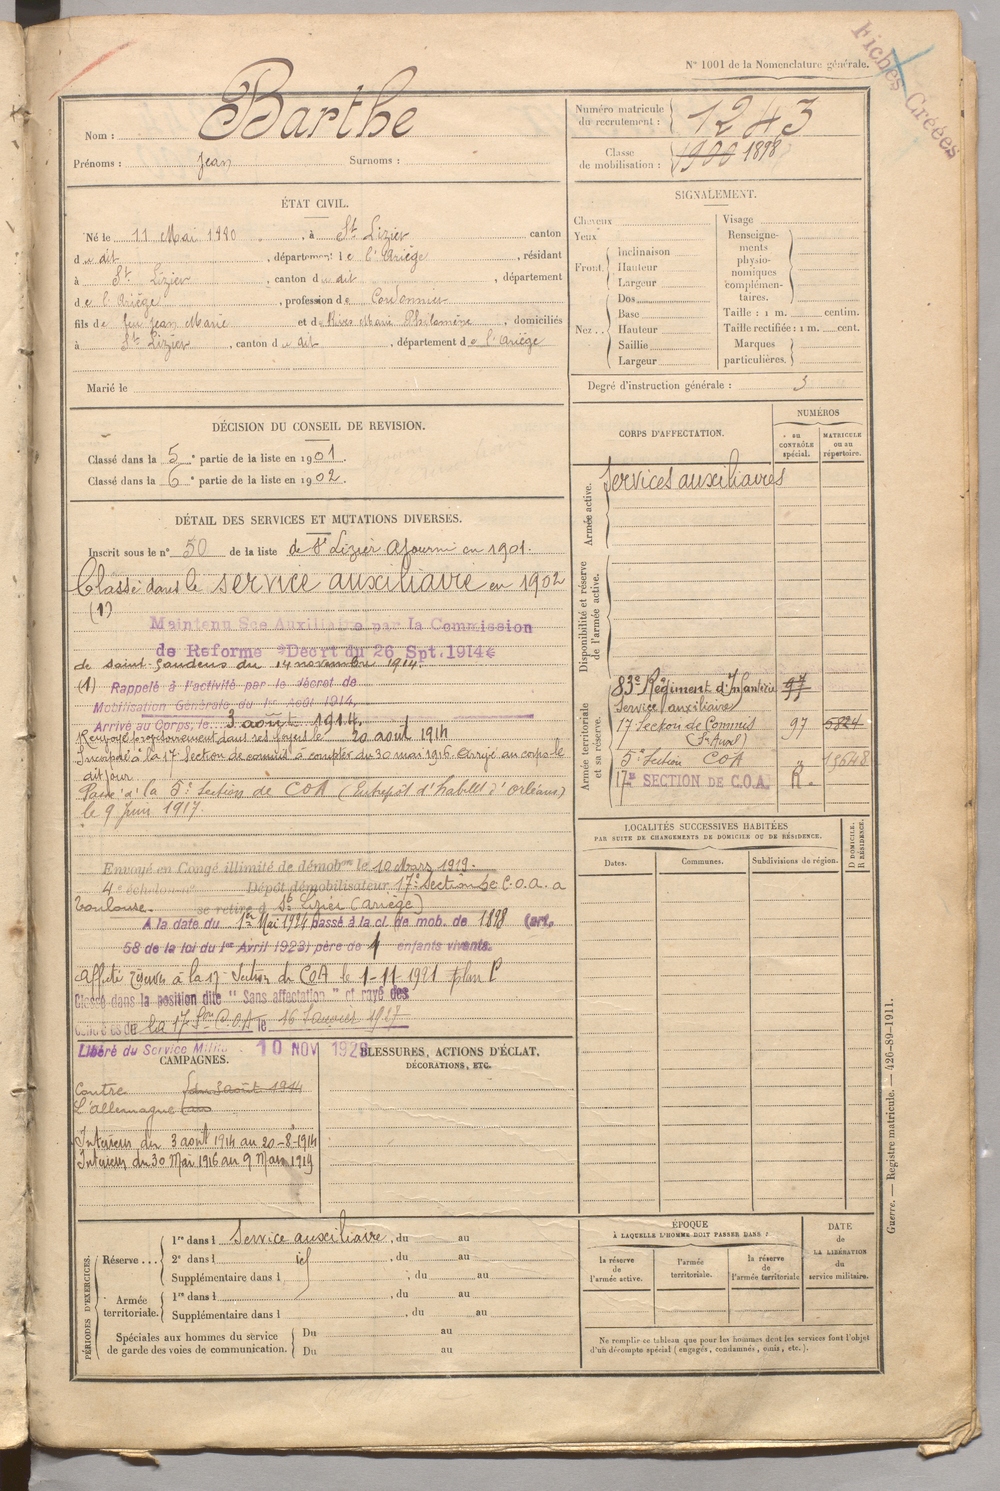 Fiches Créées
N° 1001 de la Nomenclature générale.
Nom : Barthe
Prénoms : Jean Surnoms :
Numéro matricule du recrutement : 1243
Classe de mobilisation : 1900 1898
ÉTAT CIVIL.
Né le 11 Mai 1880, à St Lizier canton
du dit, département de l'Ariège, résidant
à St Lizier, canton du dit, département
de l'Ariège, profession de Cordonnier
fils de feu Jean Marie et de Rives Marie Philomène, domiciliés
à St Lizier, canton du dit, département de l'Ariège
Marié le
SIGNALEMENT.
Cheveux
Yeux
Front Inclinaison
Hauteur
Largeur
Nez Dos
Base
Hauteur
Saillie
Largeur
Visage
Renseignements physionomiques complémentaires.
Taille : 1 m. centim.
Taille rectifiée : 1 m. cent.
Marques particulières.
Degré d'instruction générale : 3
DÉCISION DU CONSEIL DE REVISION.
Classé dans la 5e partie de la liste en 1901.
Classé dans la 6e partie de la liste en 1902.
DÉTAIL DES SERVICES ET MUTATIONS DIVERSES.
Inscrit sous le n° 50 de la liste de St Lizier Ajourné en 1901.
Classé dans le service auxiliaire en 1902
(1)
Maintenu Sce Auxiliaire par la Commission
de Reforme "Décrt du 26 Spt. 1914"
de Saint-Gaudens du 14 novembre 1914.
(1) Rappelé à l'activité par le décret de
Mobilisation Générale du 1er Août 1914,
Arrivé au Corps, le 3 août 1914.
Renvoyé provisoirement dans ses foyers le 20 août 1914
Incorporé à la 17e Section de commis à compter du 30 mai 1916. Arrivé au corps le
dit jour.
Passé à la 5e Section de COA (Entrepôt d'habillt d'Orléans)
le 9 Juin 1917.
Envoyé en Congé illimité de démobon le 10 Mars 1919.
4e échelon Dépôt démobilisateur 17e Section de C.O.A. à
Toulouse. se retire à St Lizier (Ariège)
A la date du 1er Mai 1924 passé à la cl. de mob. de 1898 (art.
58 de la loi du 1er Avril 1923) père de 1 enfants vivants.
Affecté réserves à la 17e Section de COA le 1-11-1921 plan P
Classé dans la position dite "Sans affectation" et rayé des
contrôles de la 17e Son C.O.A le 16 Janvier 1927
Libéré du Service Milit. 10 NOV 1928
CORPS D'AFFECTATION.
NUMÉROS
au CONTRÔLE spécial.
MATRICULE ou au répertoire.
Armée active.
Services auxiliaires
Disponibilité et réserve de l'armée active.
Armée territoriale et sa réserve.
83e Régiment d'Infanterie 97
Service auxiliaire
17 Section de Commis 97 5824
(S. Auxil)
5e Section COA " 15648
17e SECTION DE C.O.A. R.
LOCALITÉS SUCCESSIVES HABITÉES
PAR SUITE DE CHANGEMENTS DE DOMICILE OU DE RÉSIDENCE.
Dates. Communes. Subdivisions de région. D DOMICILE. R RÉSIDENCE.
CAMPAGNES.
Contre du 3 août 1914
L'allemagne au
Intérieur du 3 aout 1914 au 20-8-1914
Intérieur du 30 Mai 1916 au 9 Mars 1919
BLESSURES, ACTIONS D'ÉCLAT,
DÉCORATIONS, ETC.
PÉRIODES D'EXERCICES.
Réserve... 1re dans l Service auxiliaire, du au
2e dans l id, du au
Supplémentaire dans l, du au
Armée territoriale. 1re dans l, du au
Supplémentaire dans l, du au
Spéciales aux hommes du service Du au
de garde des voies de communication. Du au
ÉPOQUE
À LAQUELLE L'HOMME DOIT PASSER DANS :
la réserve de l'armée active.
l'armée territoriale.
la réserve de l'armée territoriale
DATE de LA LIBÉRATION du service militaire.
Ne remplir ce tableau que pour les hommes dont les services font l'objet
d'un décompte spécial (engagés, condamnés, omis, etc.).
Guerre. — Registre matricule. — 426-89-1911.